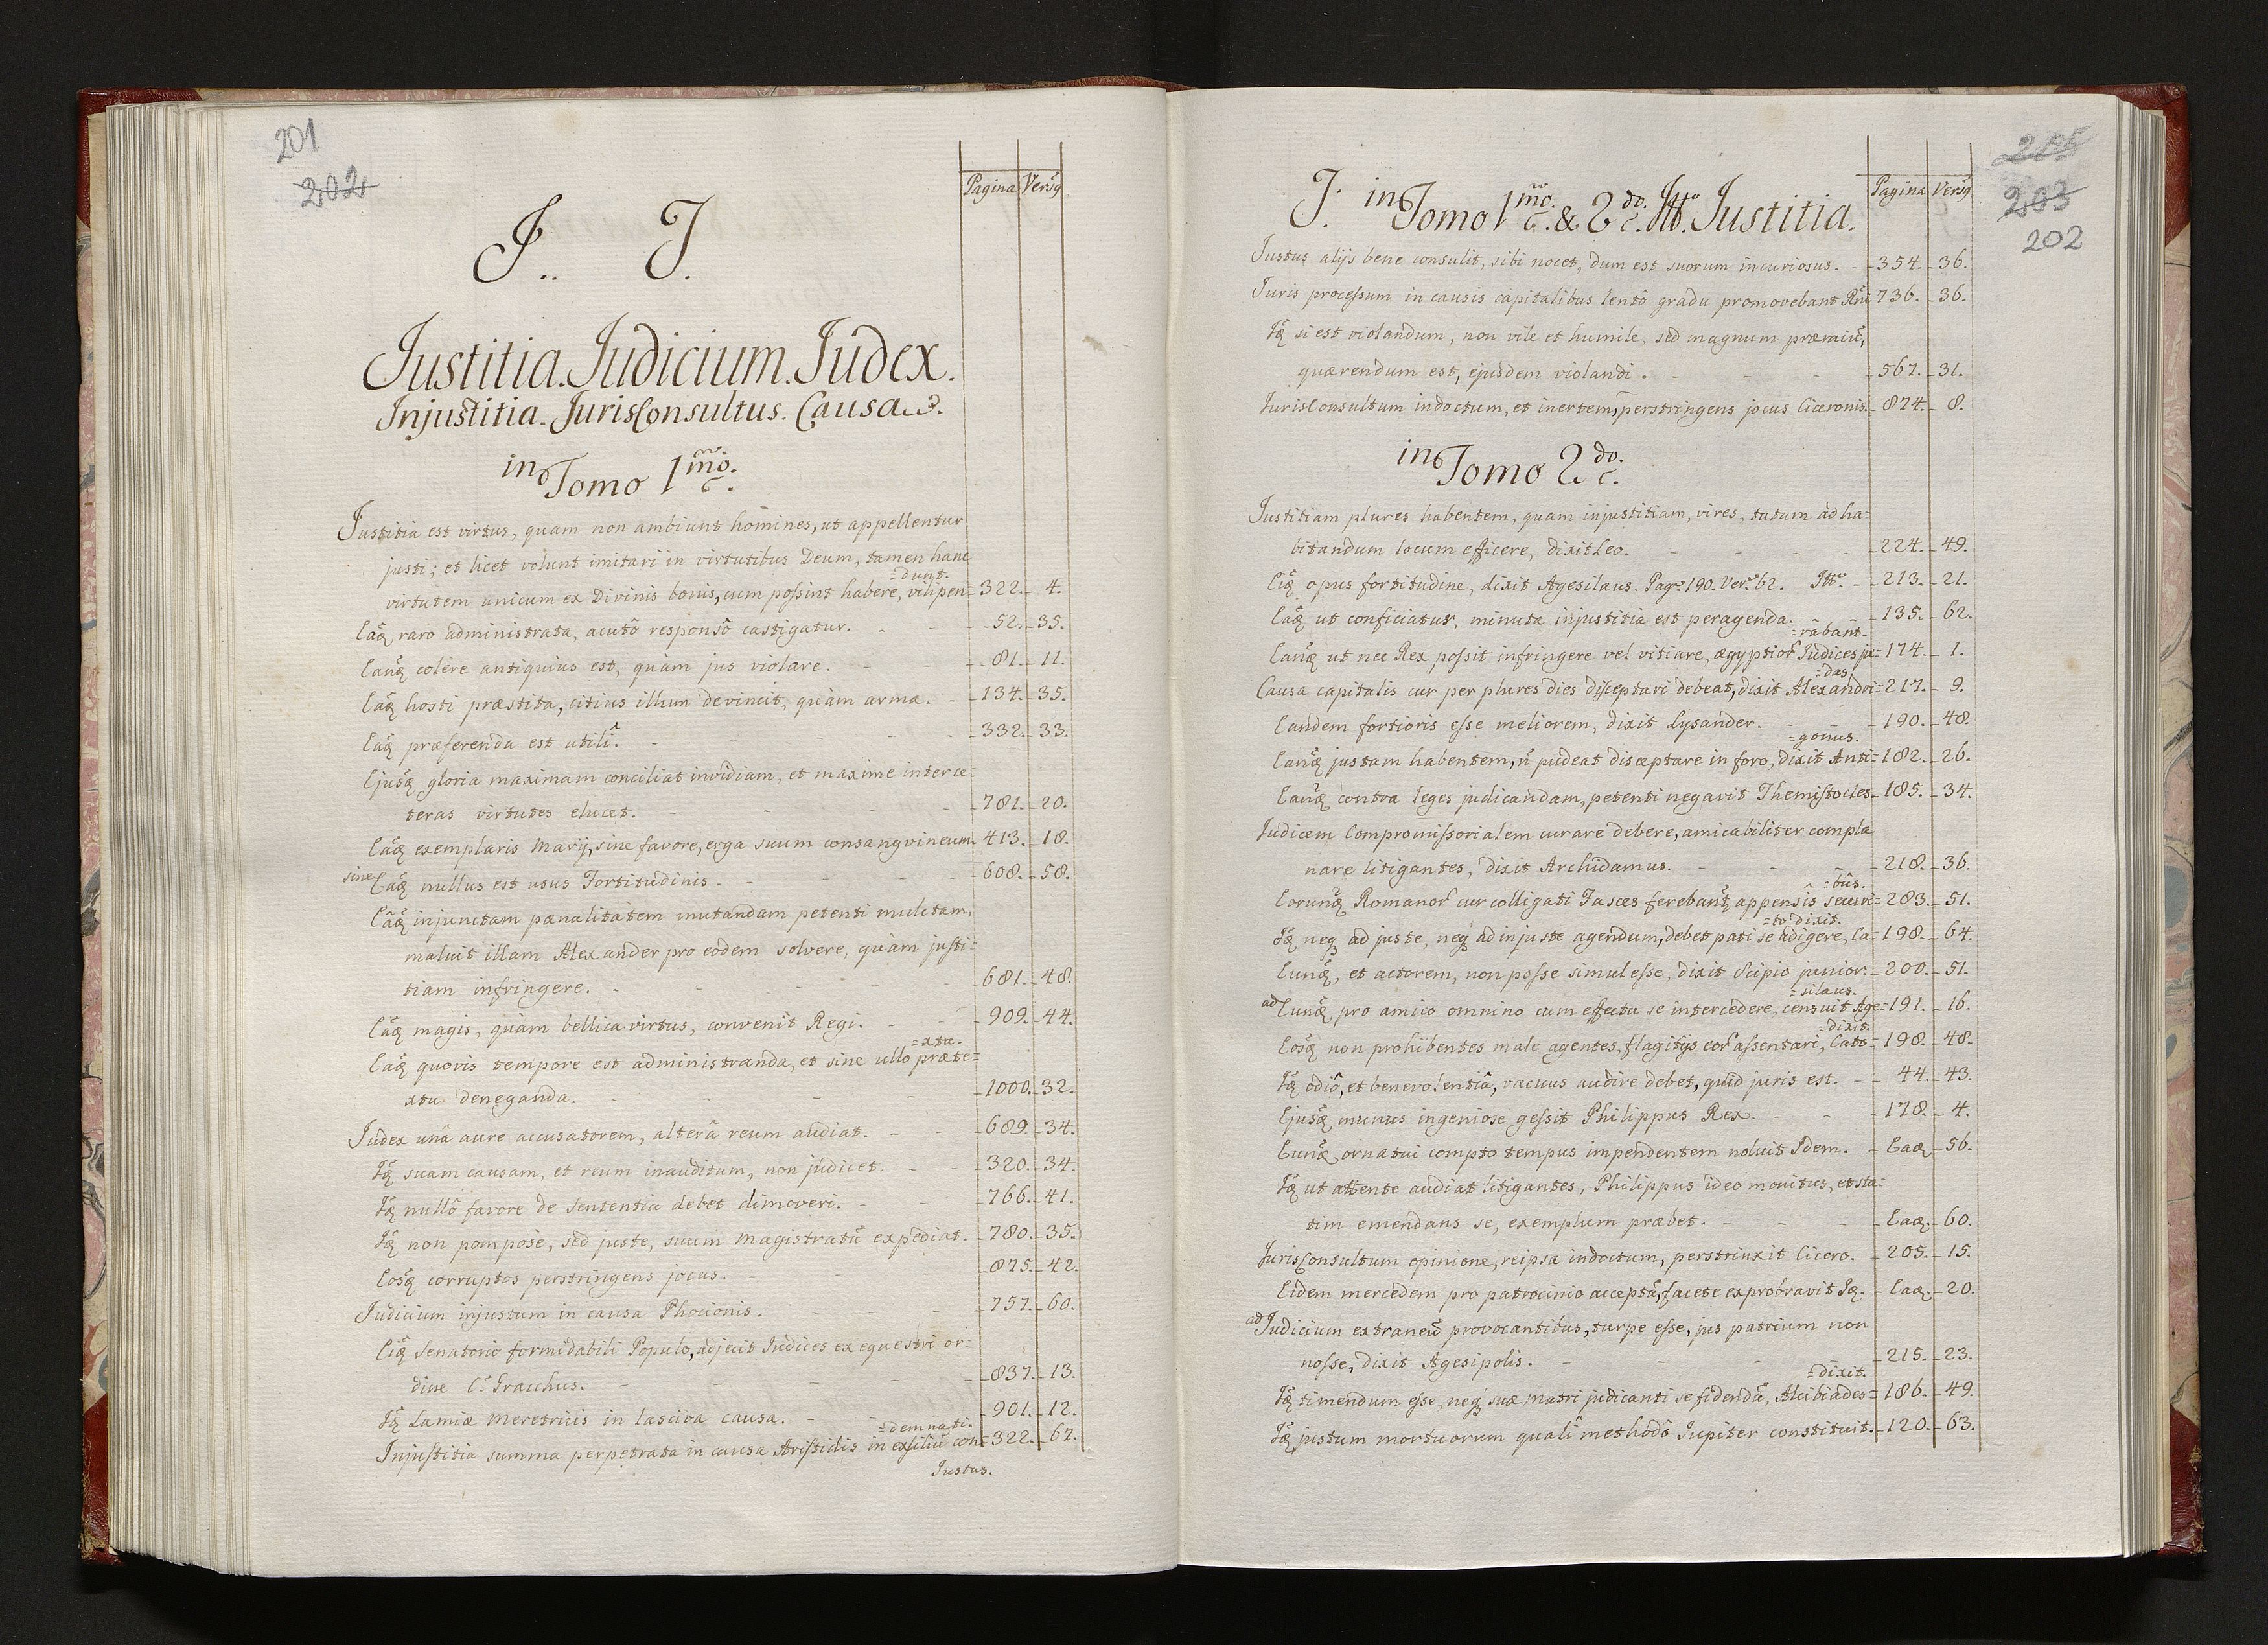 201
202
Pagina Versq̃
J. J.
Justitia. Judicium. Judex.
Injustitia. JurisConsultus. Causa.
in Tomo 1mo.
Justitia est virtus, quam non ambiunt homines, ut appellentur
justi; et licet volunt imitari in virtutibus Deum, tamen hanc
=dunt.
virtutem unicum ex Divinis bonis, cum possint habere, vilipen= 322. 4.
Eaq̃ raro administrata, acutô responsô castigatur. 52. 35.
Eanq̃ colere antiquius est, quàm jus violare. 81. 11.
Eaq̃ hosti præstita, citius illum devincit, quàm arma. 134. 35.
Eaq̃ præferenda est utili. 332. 33.
Ejusq̃ gloria maximam conciliat invidiam, et maxime inter cæ=
teras virtutes elucet. 781. 20.
Eaq̃ exemplaris Marij, sine favore, erga suum consangvineum 413. 18.
sine Eaq̃ nullus est usus Fortitudinis. 608. 58.
Eâq̃ injunctam pœnalitatem mutandam petenti mulctam,
maluit illam Alexander pro eodem solvere, quàm justi=
tiam infringere. 681. 48.
Eaq̃ magis, quàm bellica virtus, convenit Regi. 909. 44.
=xtu.
Eaq̃ quovis tempore est administranda, et sine ullo præte=
xtu deneganda. 1000. 32.
Judex unâ aure accusatorem, alterâ reum audiat. 689. 34.
Iq̃ suam causam, et reum inauditum, non judicet. 320. 34.
Iq̃ nullô favore de sententia debet dimoveri. 766. 41.
Iq̃ non pompose, sed juste, suum magistratũ expediat. 780. 35.
Eosq̃ corruptos perstringens jocus. 875. 42.
Judicium injustum in causa Phocionis. 757. 60.
Eiq̃ Senatorio formidabili Populo, adjecit Judices ex equestri or=
dine C. Gracchus. 837. 13.
Iq̃ Lamiæ meretricis in lasciva causa. 901. 12.
=demnati.
Injustitia summa perpetrata in causa Aristidis in exsiliũ con= 322. 67.
Justus.
205
203
202
Pagina Versq̃
J. in Tomo 1mo. & 2do. Itto. Justitia.
Justus alijs bene consulit, sibi nocet, dum est suorum incuriosus. 354. 36.
Juris processum in causis capitalibus lentô gradu promovebant Rñi 736. 36.
Iq̃ si est violandum, non vile et humile, sed magnum præmiũ,
quærendum est, ejusdem violandi. 567. 31.
JurisConsultum indoctum, et inertem, perstringens jocus Ciceronis. 874. 8.
in Tomo 2do.
Justitiam plures habentem, quam injustitiam, vires, tutum ad ha=
bitandum locum efficere, dixit Leo. 224. 49.
Eiq̃ opus fortitudine, dixit Agesilaus. Pag. 190. Ver. 62. Itto. 213. 21.
Eaq̃ ut conficiatur, minuta injustitia est peragenda. 135. 62.
=rabant.
Eanq̃ ut nec Rex possit infringere vel vitiare, ægyptior Judices ju= 174. 1.
=das.
Causa capitalis cur per plures dies disceptari debeat, dixit Alexandri= 217. 9.
Eandem fortioris esse meliorem, dixit Lysander. 190. 48.
=gonus.
Eanq̃ justam habentem, ñ pudeat disceptare in foro, dixit Anti= 182. 26.
Eanq̃ contra leges judicandam, petenti negavit Themistocles 185. 34.
Judicem Compromissorialem curare debere, amicabiliter compla
nare litigantes, dixit Archidamus. 218. 36.
=bus.
Eorunq̃ Romanor cur colligati Fasces ferebantr appensis securi= 283. 51.
=to dixit.
Iq̃ neq ad juste, neq ad injuste agendum, debet pati se adigere, Ca= 198. 64.
Eunq̃, et actorem, non posse simul esse, dixit Scipio junior. 200. 51.
=silaus.
ad Eunq̃ pro amico omnino cum effectu se intercedere, censuit Age= 191. 16.
=dixit.
Eosq̃ non prohibentes male agentes, flagitijs eor assentari, Cato= 198. 48.
Iq̃ odiô, et benevolentiâ, vacuus audire debet, quid juris est. 44. 43.
Ejusq̃ munus ingeniose gessit Philippus Rex. 178. 4.
Eunq̃ ornatui compto tempus impendentem noluit Idem. Eaq. 56.
Iq̃ ut attente audiat litigantes, Philippus ideo monitus, et sta=
tim emendans se, exemplum præbet. Eaq. 60.
JurisConsultum opinione, reipsa indoctum, perstrinxit Cicero. 205. 15.
Eidem mercedem pro patrocinio acceptã, facete exprobravit Iq. Eaq. 20.
ad Judicium extraneũ provocantibus, turpe esse, jus patrium non
nosse, dixit Agesipolis. 215. 23.
=dixit.
Iq̃ timendum esse, neq suæ matri judicanti se fidendũ, Alcibiades= 186. 49.
Iq̃ justum mortuorum quali methodô Jupiter constituit. 120. 63.